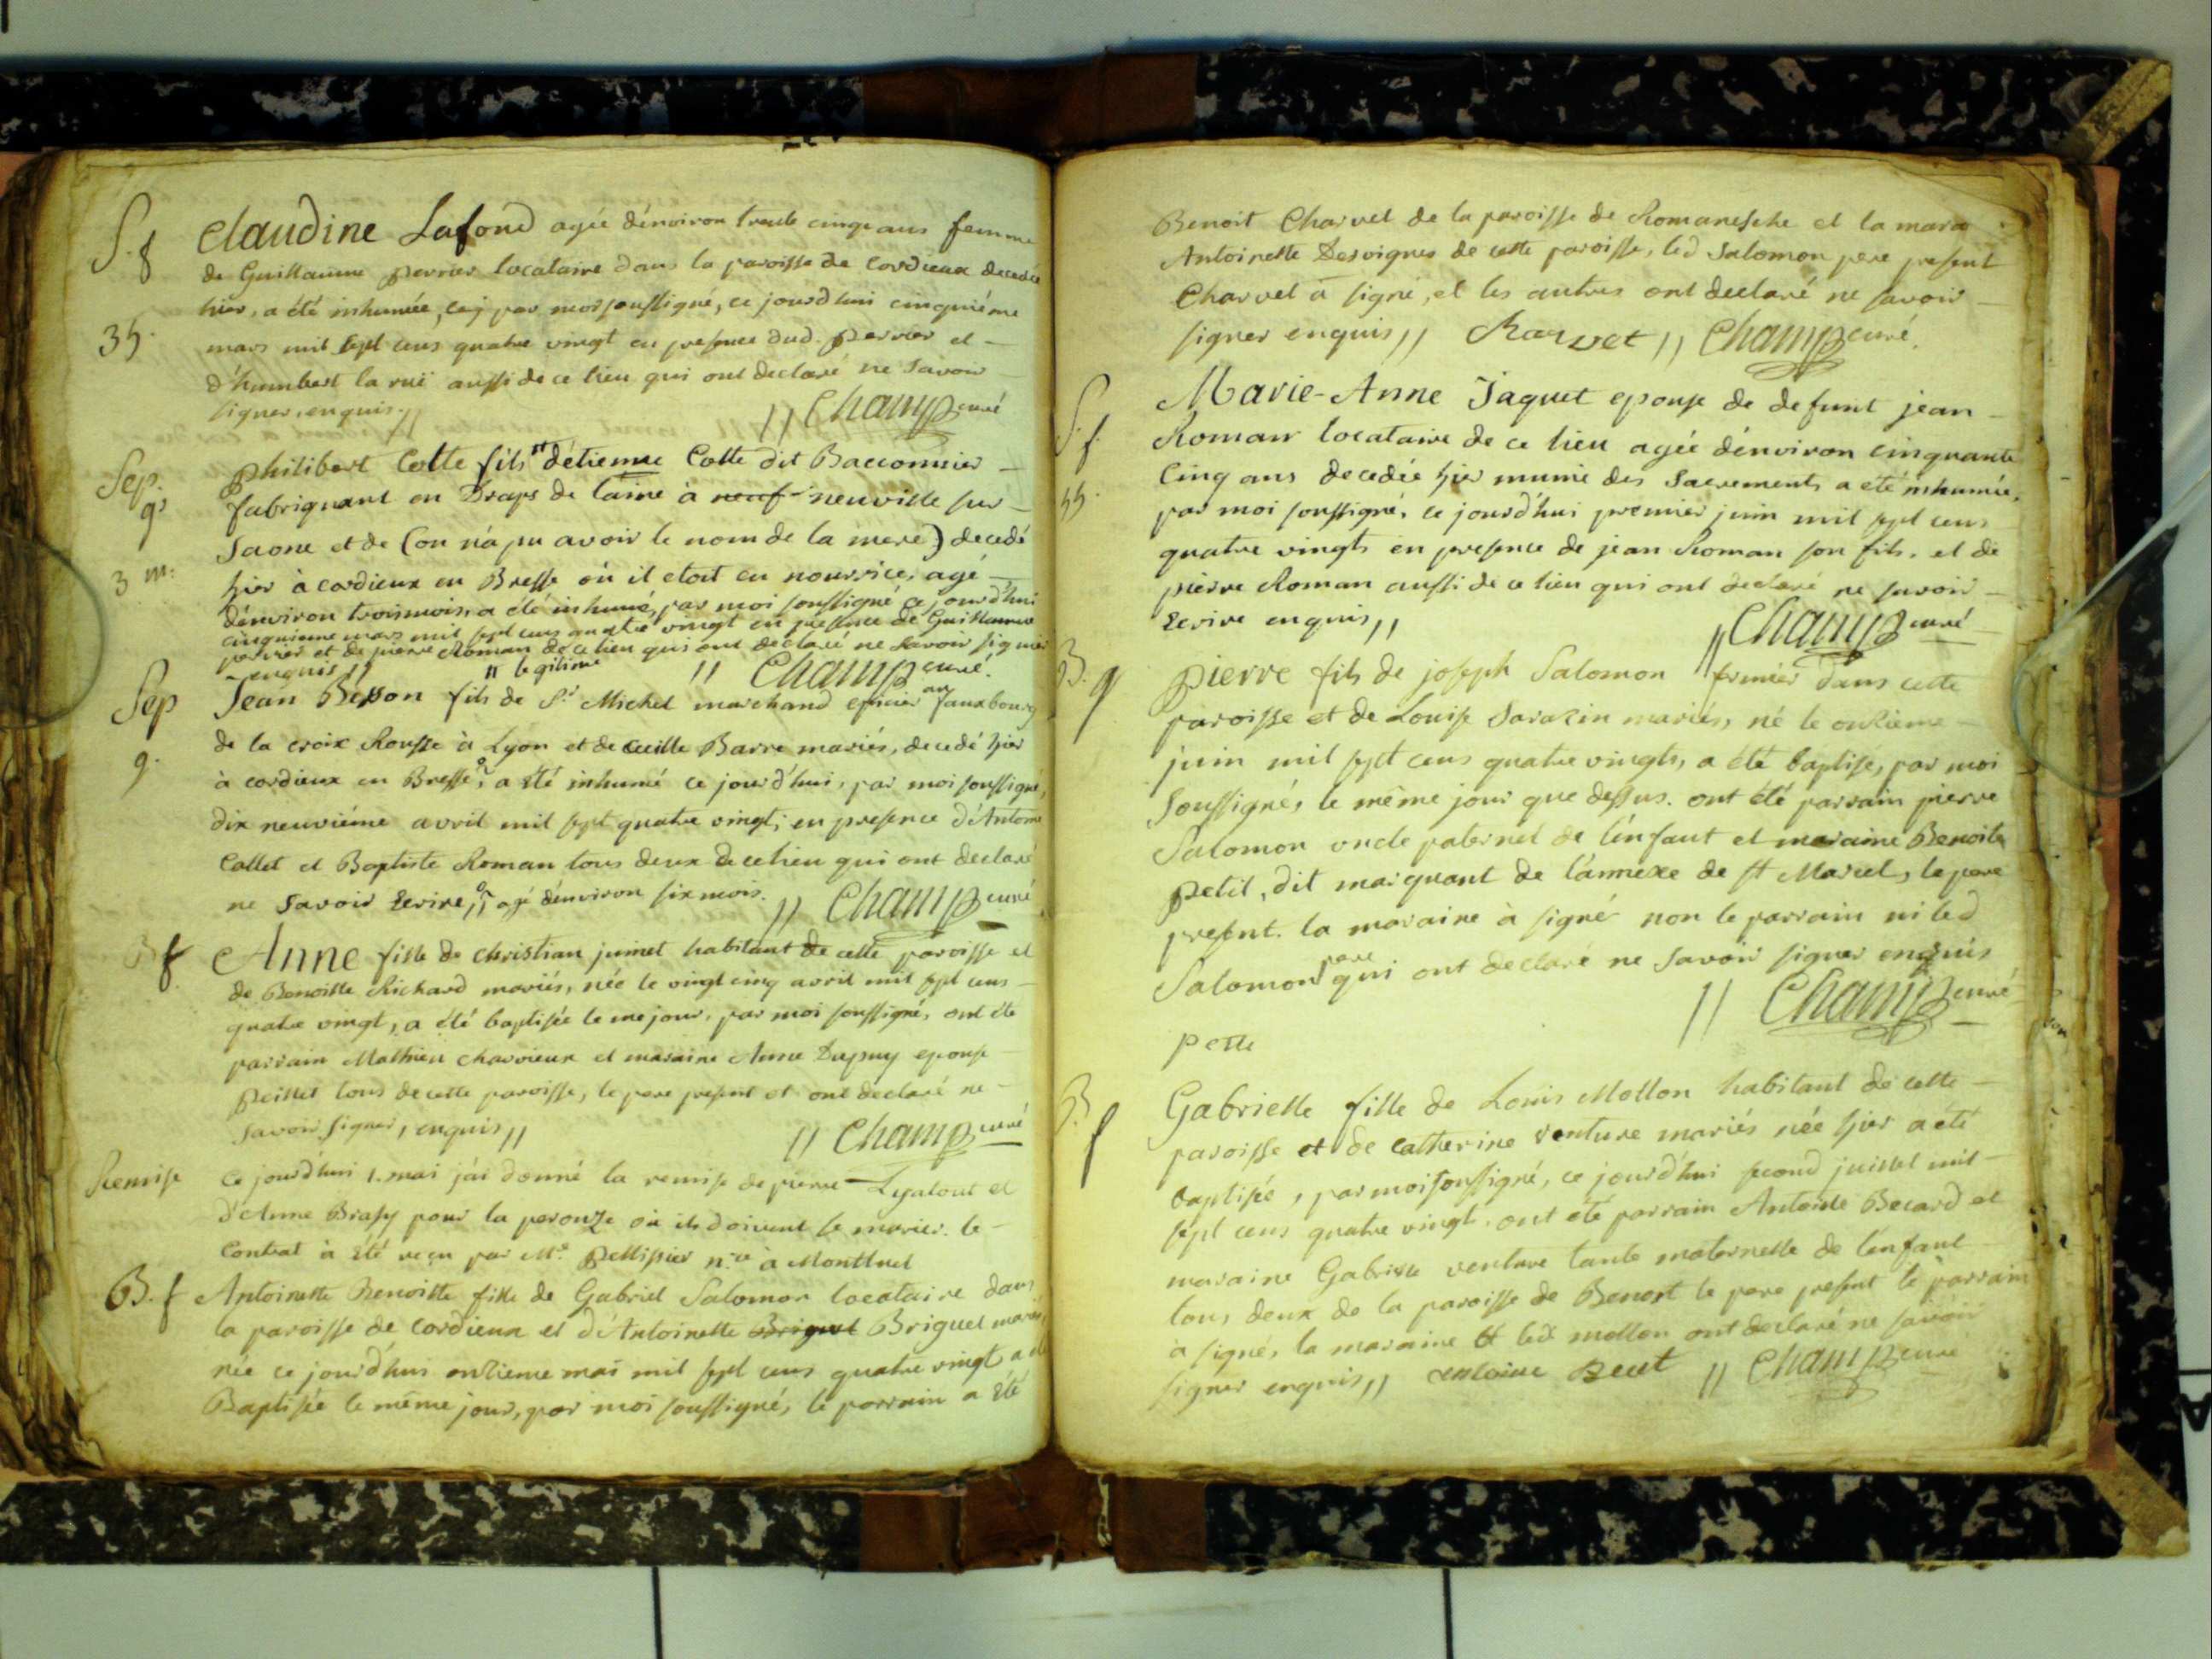 S. f Claudine Lafond agée dénviron trente cinq ans femme
de Guillaume perrier locataire dans la paroisse de Cordieux decedée
hier, a été inhumée, par moi soussigné, ce jourd'hui cinquiéme
35. mars mil sept cens quatre vingt en presence dud. perrier et
d'humbert la ruë aussi de ce lieu qui ont declaré ne savoir
signer, enquis. // Champ curé
Sep. philibert Cotte fils d'étienne Cotte dit Bacconnier
g. fabriquant en Draps de laine à neuf neuville sur
Saone et de (on n'a pu avoir le nom de la mere) decedé
3 m. hier à cordieux en Bresse où il etoit en nourrice, agé
dénviron trois mois, a été inhumé, par moi soussigné ce jourd'hui
cinquieme mars mil sept cens quatre vingt en presence de Guillaume
perrier et de pierre Roman de ce lieu qui ont declaré ne savoir signer
enquis // // Champ curé.
// legitime
Sep Jean Besson fils de Sr Michel marchand epicier au fauxbourg
de la croix Rousse à Lyon et de Barre mariés, decedé hier
g. à cordieux en Bresse, a été inhumé ce jourd'hui, par moi soussigné,
dix neuviéme avril mil sept quatre vingt, en presence d'Antoine
Collet et Baptiste Roman tous deux de ce lieu qui ont declaré
ne Savoir Ecrire, // agé dénviron six mois. // Champ curé
B f Anne fille de christian juinet habitant de cette paroisse et
de Benoitte Richard mariés, née le vingt cinq avril mil sept cens
quatre vingt, a été baptisée le me jour, par moi soussigné, ont été
parrain Mathieu charvieux et maraine Anne Dupuy epouse
peillet tous de cette paroisse, le pere present et ont declaré ne
Savoir signer, enquis // // Champ curé
Remise Ce jourd'hui 1. mai j'ai donné la remise de pierre Lyatout et
d'Anne Brasy pour la perouze où ils doivent se marier. le
Contrat à été reçu par Me. pellissier n.re à Montluel
B. f Antoinette Benoitte fille de Gabriel Salomon locataire dans
la paroisse de cordieux et d'Antoinette Briguet Briguet mariés
née ce jourd'hui onzieme mai mil sept cens quatre vingt a été
Baptisée le même jour, par moi soussigné, le parrain a été
Benoit Charvet de la paroisse de Romanesche et la mara
Antoinette Desvignes de cette paroisse, led Salomon pere present
Charvet à signé, et les autres ont declaré ne savoir
signer enquis // Charvet // Champ curé.
S. f. Marie-Anne Jaquet epouse de defunt jean
Roman locataire de ce lieu agée dénviron cinquante
55. Cinq ans decedée hier munie des Sacrements a été inhumée,
par moi soussigné, ce jourd'hui premier juin mil sept cens
quatre vingts en presence de jean Roman son fils. et de
pierre Roman aussi de ce lieu qui ont declaré ne savoir
Ecrire enquis // // Champ curé
B. g pierre fils de joseph Salomon fermier dans cette
paroisse et de Louise Sarazin mariés, né le onzieme
juin mil sept cens quatre vingts, a été baptisé, par moi
Soussigné, le même jour que dessus. ont été parrain pierre
Salomon oncle paternel de l'enfant et maraine Benoite
petit, dit maiquant de l'annexe de st Marcel, le pere
present. la maraine à signé non le parrain ni led
Salomon pere qui ont declaré ne savoir signer enquis
// Champ curé
petit
B. f Gabrielle fille de Louis Mollon habitant de cette
paroisse et de catherine venture mariés née hier a été
baptisée, par moi soussigné, ce jourd'hui second juillet mil
sept cens quatre vingt. ont été parrain Antoine Becard et
maraine Gabrielle venture tante maternelle de l'enfant
tous deux de la paroisse de Benost le pere present le parrain
à signé, la maraine et led mollon ont declaré ne savoir
signer enquis // antoine // Champ curé